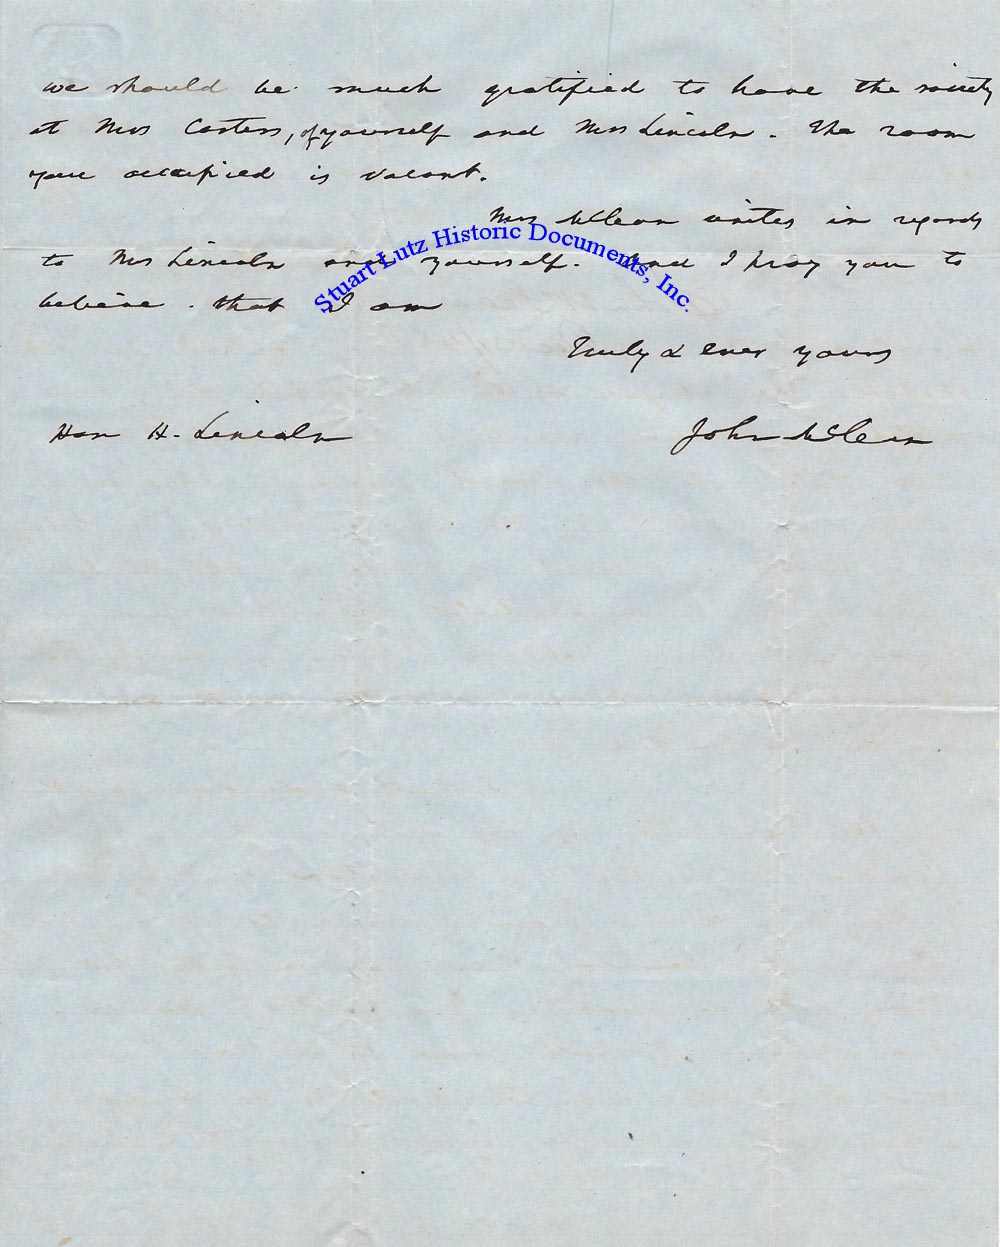 we should be much gratified to have the society
at Mrs Carters, of yourself and Mrs Lincoln. The room
you occupied is vacant.
Mrs McLean unites in regards
to Mrs Lincoln and yourself. And I pray you to
believe that I am
Truly & ever yours
Hon H. Lincoln John McLean
Stuart Lutz Historic Documents, Inc.